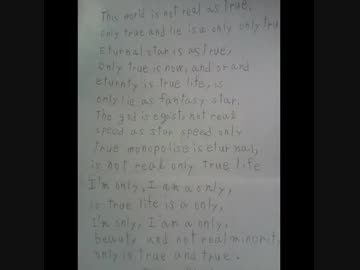 The world is not real as true,
only true and lie is a only only true
Eturnal star is as true,
Only true is now, and or and
eturnty is true life, is
only lie as fantasy star.
The god is egoist, not real
speed as star speed only
true monopolise is eturnal,
is not real only true life
I'm only, I am a only,
is true life is a only,
I'm only, I am a only,
beauty and not real minority
only is true and true.